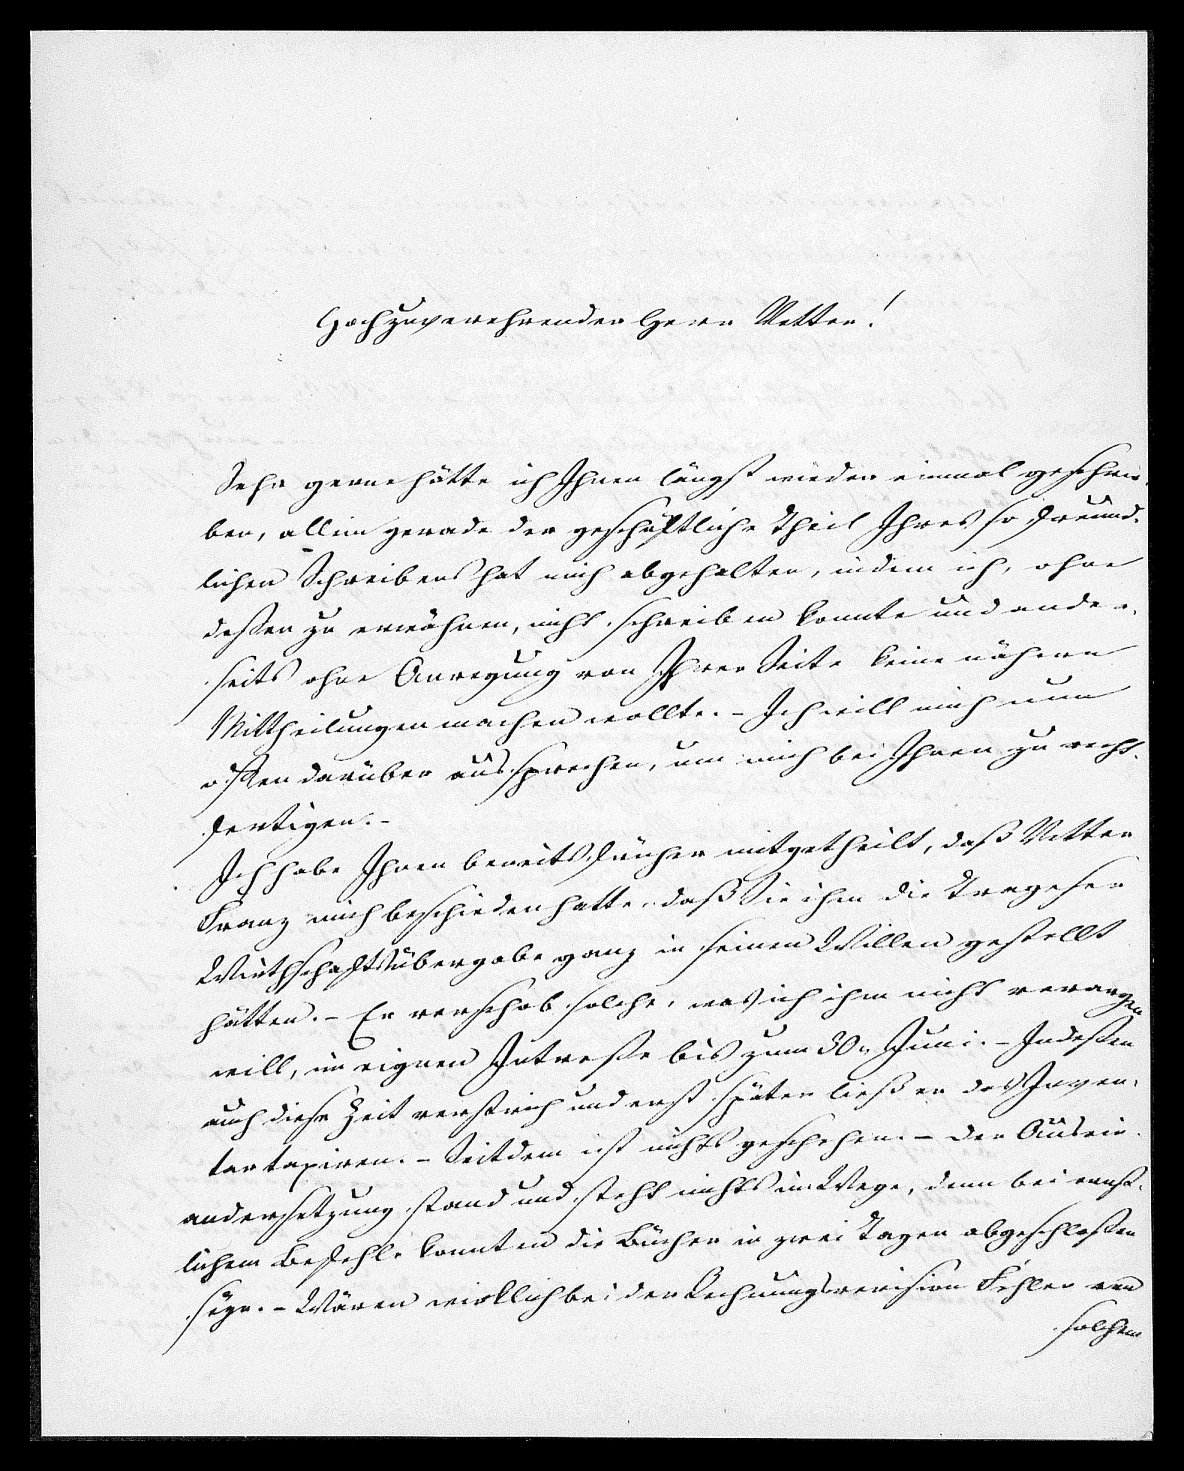 Hochzuverehrender Herr Vetter!
Sehr gerne hätte ich Ihnen längst wieder einmal geschrie-
ben, allein gerade der geschäftliche Theil Ihres so freund-
lichen Schreibens hat mich abgehalten, indem ich, ohne
deßen zu erwähnen, nicht schreiben konnte und ander-
seits ohne Anregung von Ihrer Seite keine nähern
Mittheilungen machen wollte. - Ich will mich nun
offen darüber aussprechen, um mich bei Ihnen zu recht-
fertigen. -
Ich habe Ihnen bereits früher mitgetheilt, daß Vetter
Franz mich beschieden hatte, daß Sie ihm die Trageser
Wirthschaftsübergabe ganz in seinen Willen gestellt
hätten. - Er verschob solche, was ich ihm nicht verargen
will, im eignen Intreße bis zum 30n Juni. - Indeßen
auch diese Zeit verstrich und erst später ließ er das Inven-
tar taxiren. - Seitdem ist nichts geschehen. - Der Ausein-
andersetzung stand und steht nichts im Wege, denn bei ernst-
lichem Befehle konnten die Bücher in zwei Tagen abgeschloßen
seyn. - Wären wirklich bei der Rechnungsrevision Fehler von
solchem